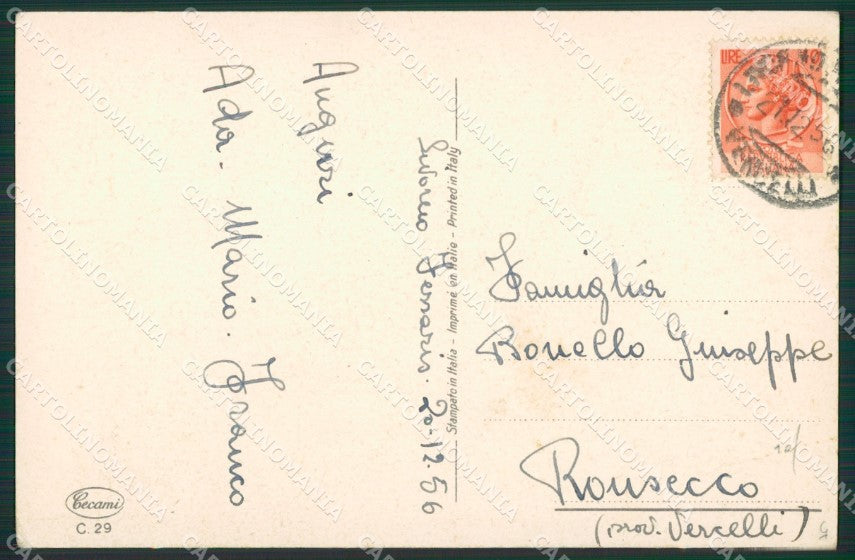 Auguri
Ada. Mario. Franco
Livorno Ferraris. 20-12-56
Stampato in Italia - Imprimé en Italie - Printed in Italy
LIRE
Famiglia
Bonello Giuseppe
Ronsecco
(prov. Vercelli)
Cecami
C. 29
CARTOLINOMANIA